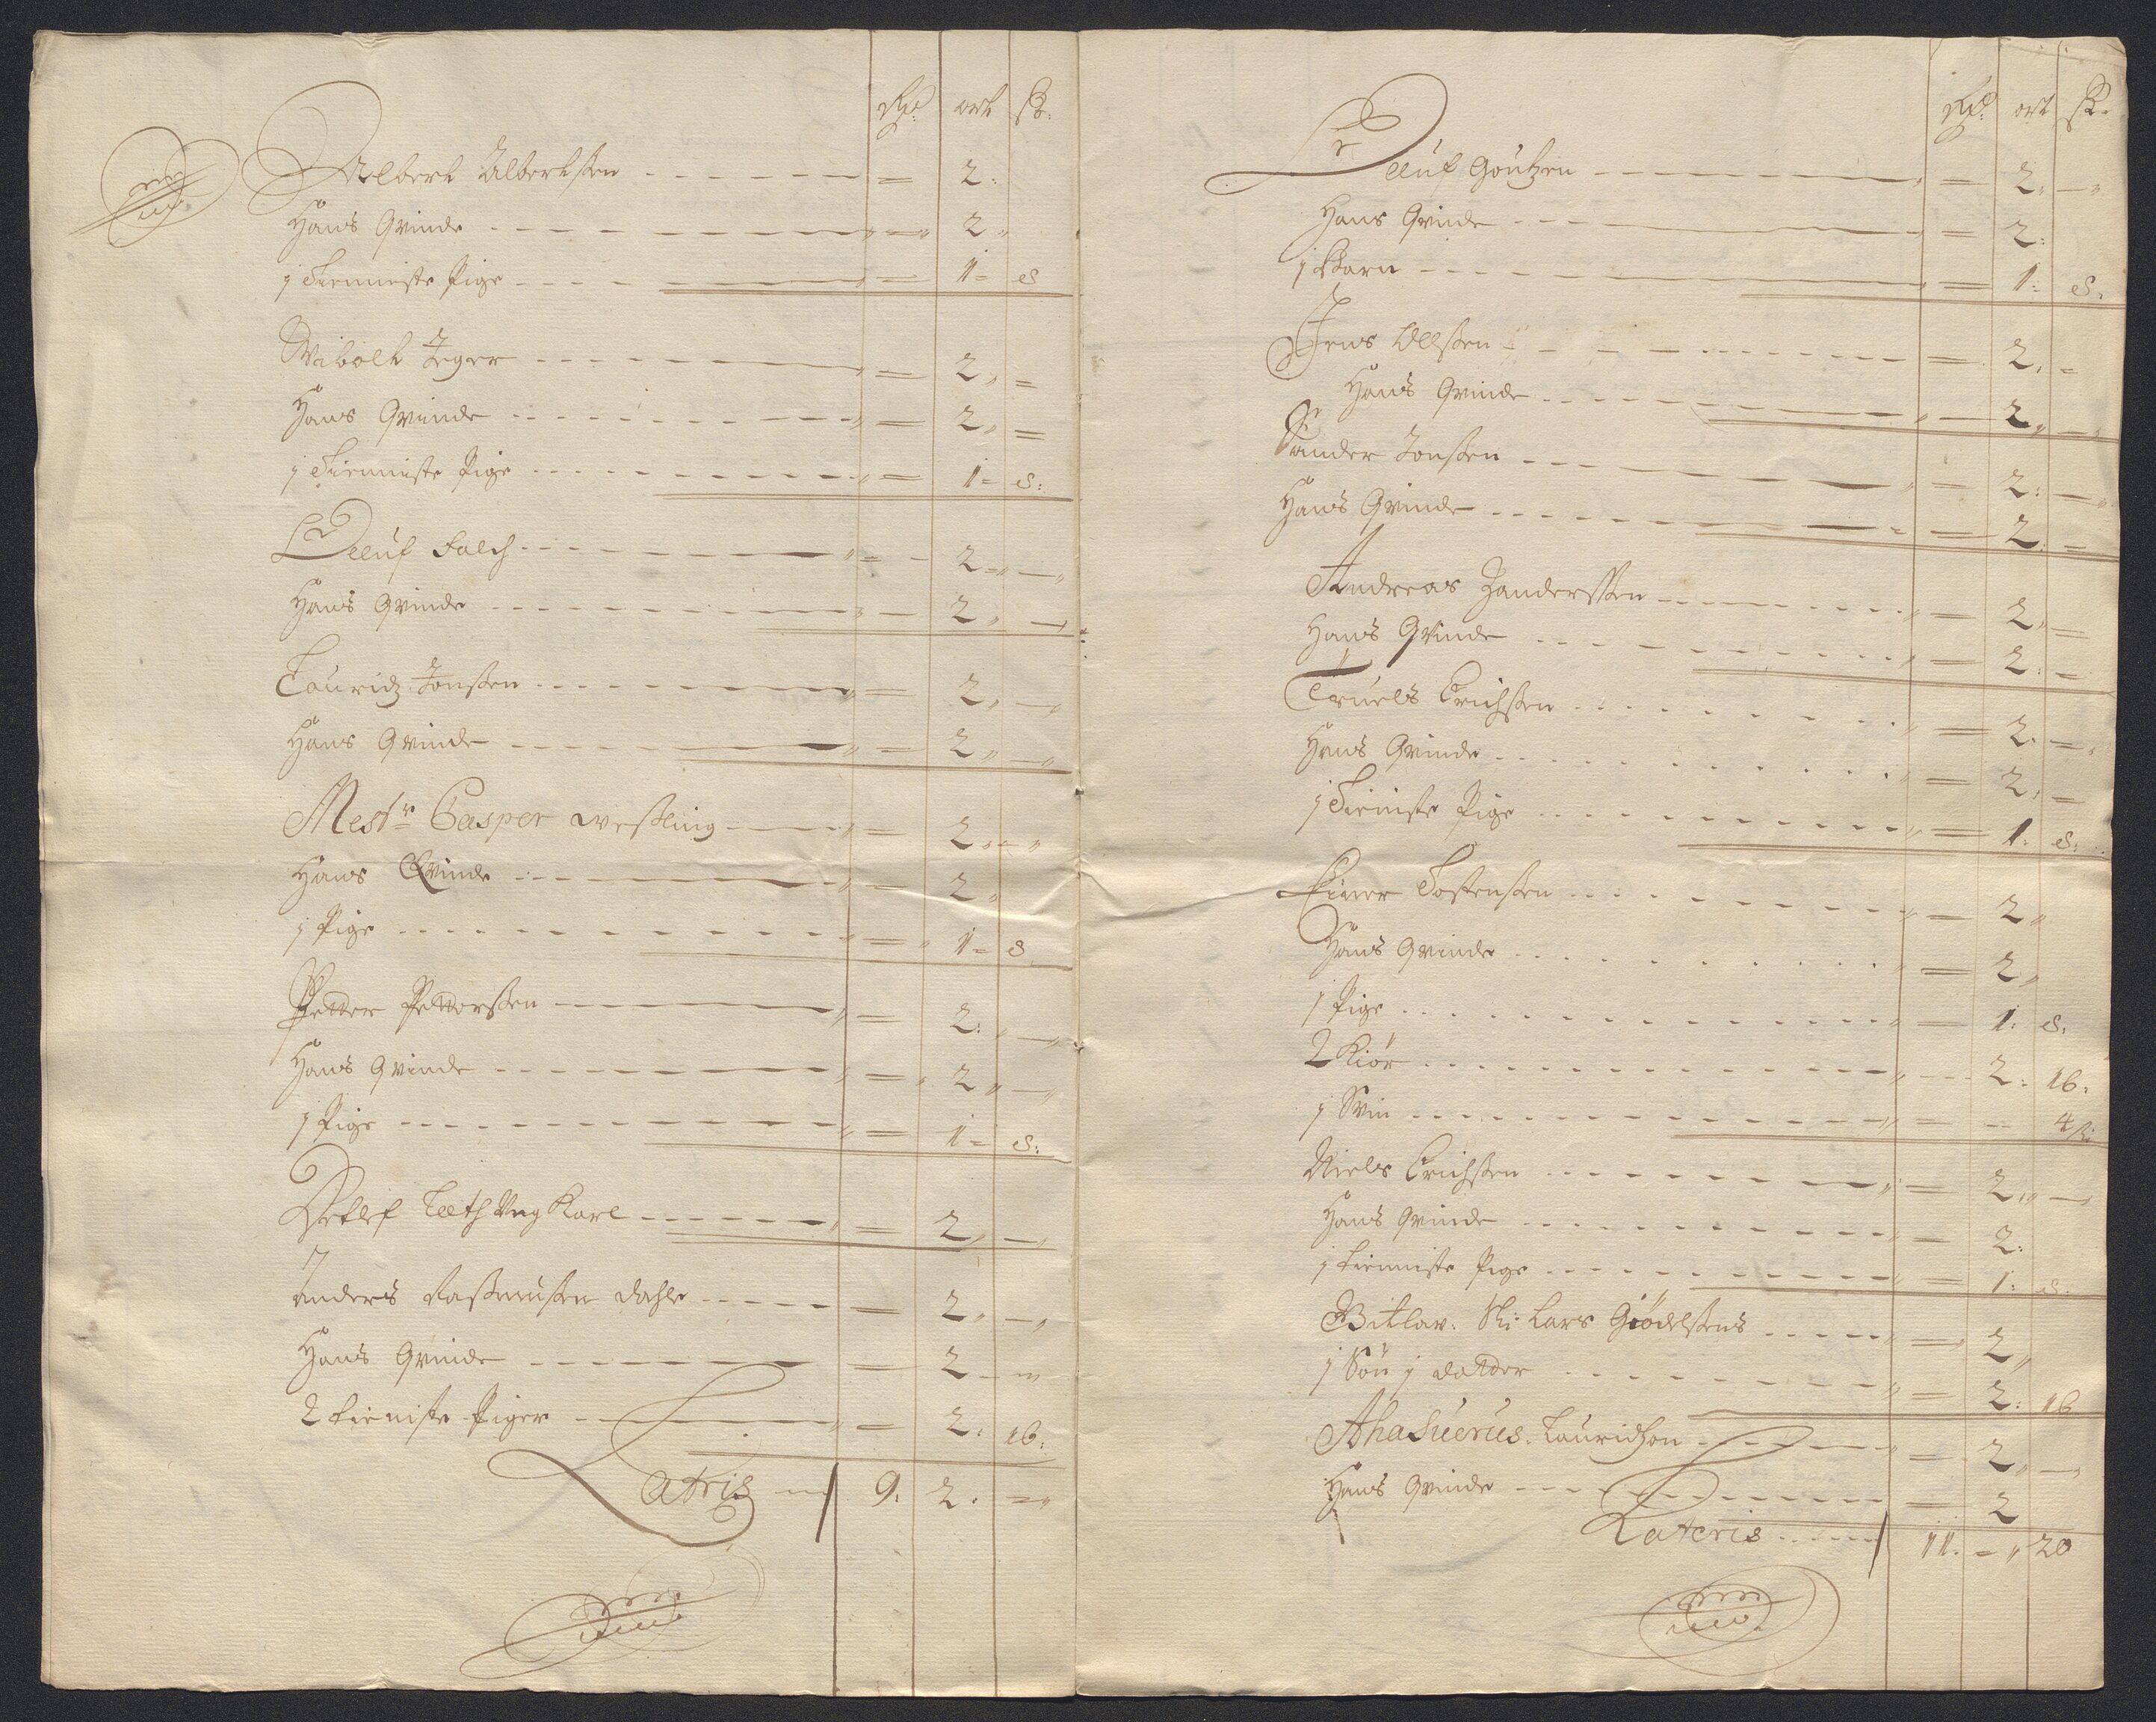 Rd: ort ß:
Albert Albertsen - - - = 2:
Hans Qvinde - - - = 2
j Tienniste Pige - - - = 1 = 8
Wibolt Jeger - - - = 2 =
Hans Qvinde - - - = 2 =
j Tienniste Pige - - - = 1 = 8:
Oeluf Falch - - - = 2 -
Hans Qvinde - - - 2 -
Lauridz Jonßen - - - = 2 -
Hans Qvinde - - - = 2 -
Mestr Casper Weßling - - - = 2
Hans Qvinde - - - 2
j Pige - - - = 1 = 8
Petter Petterßen - - - = 2: -
Hans Qvinde - - - = 2 -
j Pige - - - = 1 = 8:
Detlef Ung Karl - - - = 2 -
Anders Raßmusen Dahle - - - = 2 -
Hans Qvinde - - - = 2
2 tieniste Piger - - - = 2: 16:
Latris 9: 2: =
Rd: ort ß:
Oeluf Goutzen - - - = 2: -
Hans Qvinde - - - = 2:
j Barn - - - = 1: 8:
Jens Ollßen - - - = 2 =
Hans Qvinde - - - 2 -
Sander Jonßen - - - = 2: -
Hans Qvinde - - - = 2 =
Andreas Zanderßen - - - = 2 =
Hans Qvinde - - - = 2: -
Truels Erichßen - - - = 2: =
Hans Qvinde - - - = 2 =
j Tieniste Pige - - - = 1: 8:
Einer Tostenßen - - - = 2
Hans Qvinde - - - = 2
j Pige - - - = 1: 8:
2 Kiør - - - 2: 16:
j Svin - - - = - 4 ß:
Niels Erichßen - - - = 2 -
Hans Qvinde - - - = 2:
j tienniste Pige - - - = 1: 8:
Lars Giødelßens - - - = 2
j Søn j datter - - - = 2: 16
Ahasuerus Lauridßon - - - = 2 -
Hans Qvinde - - - = 2
Lateris 11: = 20